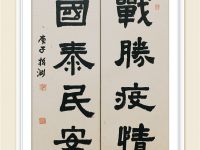 戰勝疫情
國泰民安
庚子